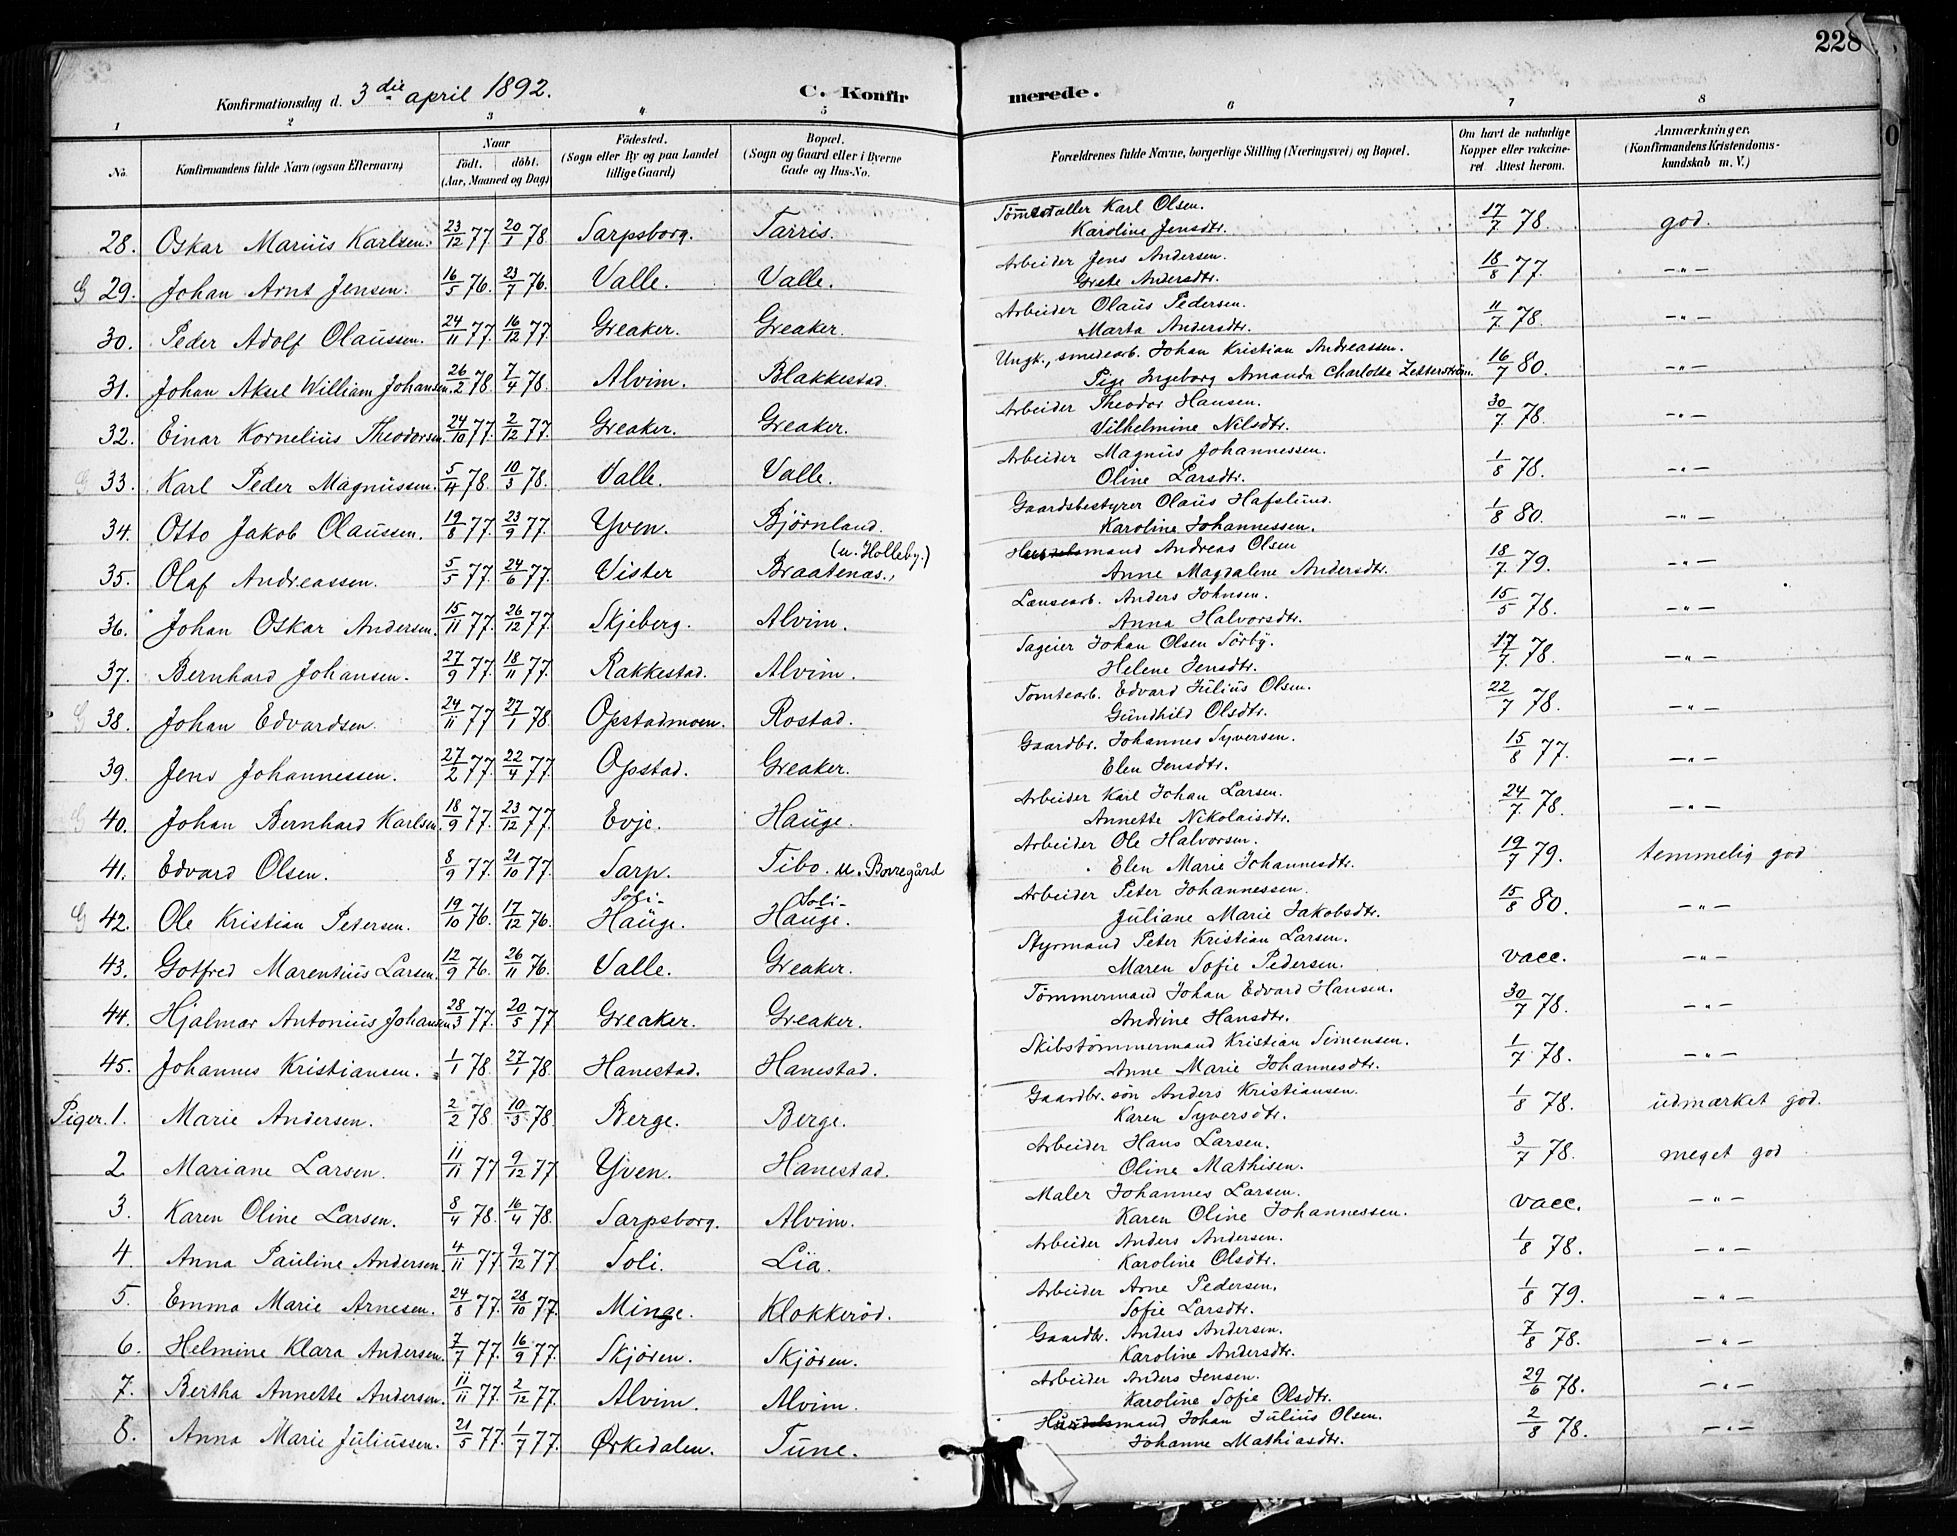 228
Konfirmationsdag d. 3die april 1892. C. Konfirmerede.
1 2 3 4 5 6 7 8
No. Konfirmandens fulde Navn (ogsaa Efternavn) Naar Födt. döbt. (Aar, Maaned og Dag) Födested. (Sogn eller By og paa Landet tillige Gaard) Bopæl. (Sogn og Gaard eller i Byerne Gade og Hus-No. Forældrenes fulde Navne, borgerlige Stilling (Næringsvei) og Bopæl. Om havt de naturlige Kopper eller vaccineret Attest herom. Anmærkninger. (Konfirmandens Kristendomskundskab m. V.)
28. Oskar Marius Karlsen. 23/12 77 20/1 78 Sarpsborg. Tarris. Karl Olsen. Karoline Jensdtr. 17/7 78. god.
G 29. Johan Arnt Jensen. 16/5 76. 23/7 76. Valle. Valle. Arbeider Jens Andersen. Grete Andersdtr. 18/8 77. —"—
30. Peder Adolf Olaussen. 24/11 77. 16/12 77. Greaker. Greaker. Arbeider Olaus Pedersen. Marta Andersdtr. 11/7 78. —"—
31. Johan Aksel William Johansen. 26/2 78. 7/4 78. Alvim. Blakkestad. Ungk., smedearb. Johan Kristian Andreassen. Pige Ingeborg Amanda Charlotte Zetterström. 16/7 80. —"—
32. Einar Kornelius Theodorsen. 24/10 77. 2/12 77. Greaker. Greaker. Arbeider Theodor Hansen. Vilhelmine Nilsdtr. 30/7 78. —"—
G 33. Karl Peder Magnussen. 5/4 78. 10/3 78. Valle. Valle. Arbeider Magnus Johannessen. Oline Larsdtr. 1/8 78. —"—
34. Otto Jakob Olaussen. 19/8 77. 23/9 77. Yven. Björnland. Gaardsbestyrer Olaus Hafslund. Karoline Johannessen. 1/8 80. —"—
35. Olaf Andreassen. 5/5 77. 24/6 77. Vister Braatenas., (u. Holleby.) Andreas Olsen Anne Magdalene Andersdtr. 18/7 79. —"—
36. Johan Oskar Andersen. 15/11 77. 26/12 77. Skjeberg. Alvim. Lænsearb. Anders Johnsen. Anna Halvorsdtr. 15/5 78. —"—
37. Bernhard Johansen. 27/9 77. 18/11 77. Rakkestad. Alvim. Sageier Johan Olsen Sörby. Helene Jensdtr. 17/7 78. —"—
G 38. Johan Edvardsen. 24/11 77 27/1 78. Opstadmoen. Rostad. Tomtearb. Edvard Julius Olsen. Gundhild Olsdtr. 22/7 78. —"—
39. Jens Johannessen. 27/2 77. 22/4 77. Opstad. Greaker. Gaardbr. Johannes Syversen. Elen Jensdtr. 15/8 77. —"—
G 40. Johan Bernhard Karlsen. 18/9 77. 23/12 77. Evje. Hauge. Arbeider Karl Johan Larsen. Annette Nikolaisdtr. 24/7 78. —"—
41. Edvard Olsen. 8/9 77. 21/10 77. Sarp. Tibo. u. Borregård Arbeider Ole Halvorsen. Elen Marie Johannesdtr. 19/7 79. temmelig god
G 42. Ole Kristian Petersen. 19/10 76. 17/12 76. Soli-Hauge. Soli-Hauge. Arbeider Peter Johannessen. Juliane Marie Jakobsdtr. 15/8 80. —"—
43. Gotfred Marentius Larsen. 12/9 76. 26/11 76. Valle. Greaker. Styrmand Peter Kristian Larsen. Maren Sofie Pedersen. vacc. —"—
44. Hjalmar Antonius Johansen. 28/3 77. 20/5 77. Greaker. Greaker. Tömmermand Johan Edvard Hansen. Andrine Hansdtr. 30/7 78. —"—
45. Johannes Kristiansen. 1/1 78. 27/1 78. Hanestad. Hanestad. Skibstömmermand Kristian Simensen. Anne Marie Johannesdtr. 1/7 78. —"—
Piger. 1. Marie Andersen. 2/2 78. 10/3 78. Berge. Berge. Gaardbr. sön Anders Kristiansen. Karen Syversdtr. 1/8 78. udmærket god.
2 Mariane Larsen. 11/11 77 9/12 77. Yven. Hanestad. Arbeider Hans Larsen. Oline Mathisen. 3/7 78. meget god
3. Karen Oline Larsen. 8/4 78. 16/4 78. Sarpsborg. Alvim. Maler Johannes Larsen. Karen Oline Johannessen. vacc. —"—
4. Anna Pauline Andersen. 4/11 77. 9/12 77. Soli. Lia. Arbeider Anders Andersen. Karoline Olsdtr. 1/8 78. —"—
5. Emma Marie Arnesen. 24/8 77. 28/10 77. Minge. Klokkeröd. Arbeider Arne Pedersen. Sofie Larsdtr. 1/8 79. —"—
6. Helmine Klara Andersen. 7/7 77. 16/9 77. Skjören. Skjören. Gaardbr. Anders Andersen. Karoline Andersdtr. 7/8 78. —"—
7. Bertha Annette Andersen. 11/11 77. 2/12 77. Alvim. Alvim. Arbeider Anders Jensen. Karoline Sofie Olsdtr. 29/6 78. —"—
8. Anna Marie Juliussen. 21/5 77. 1/7 77. Ørkedalen. Tune. Johan Julius Olsen. Johanne Mathiasdtr. 2/8 78. —"—